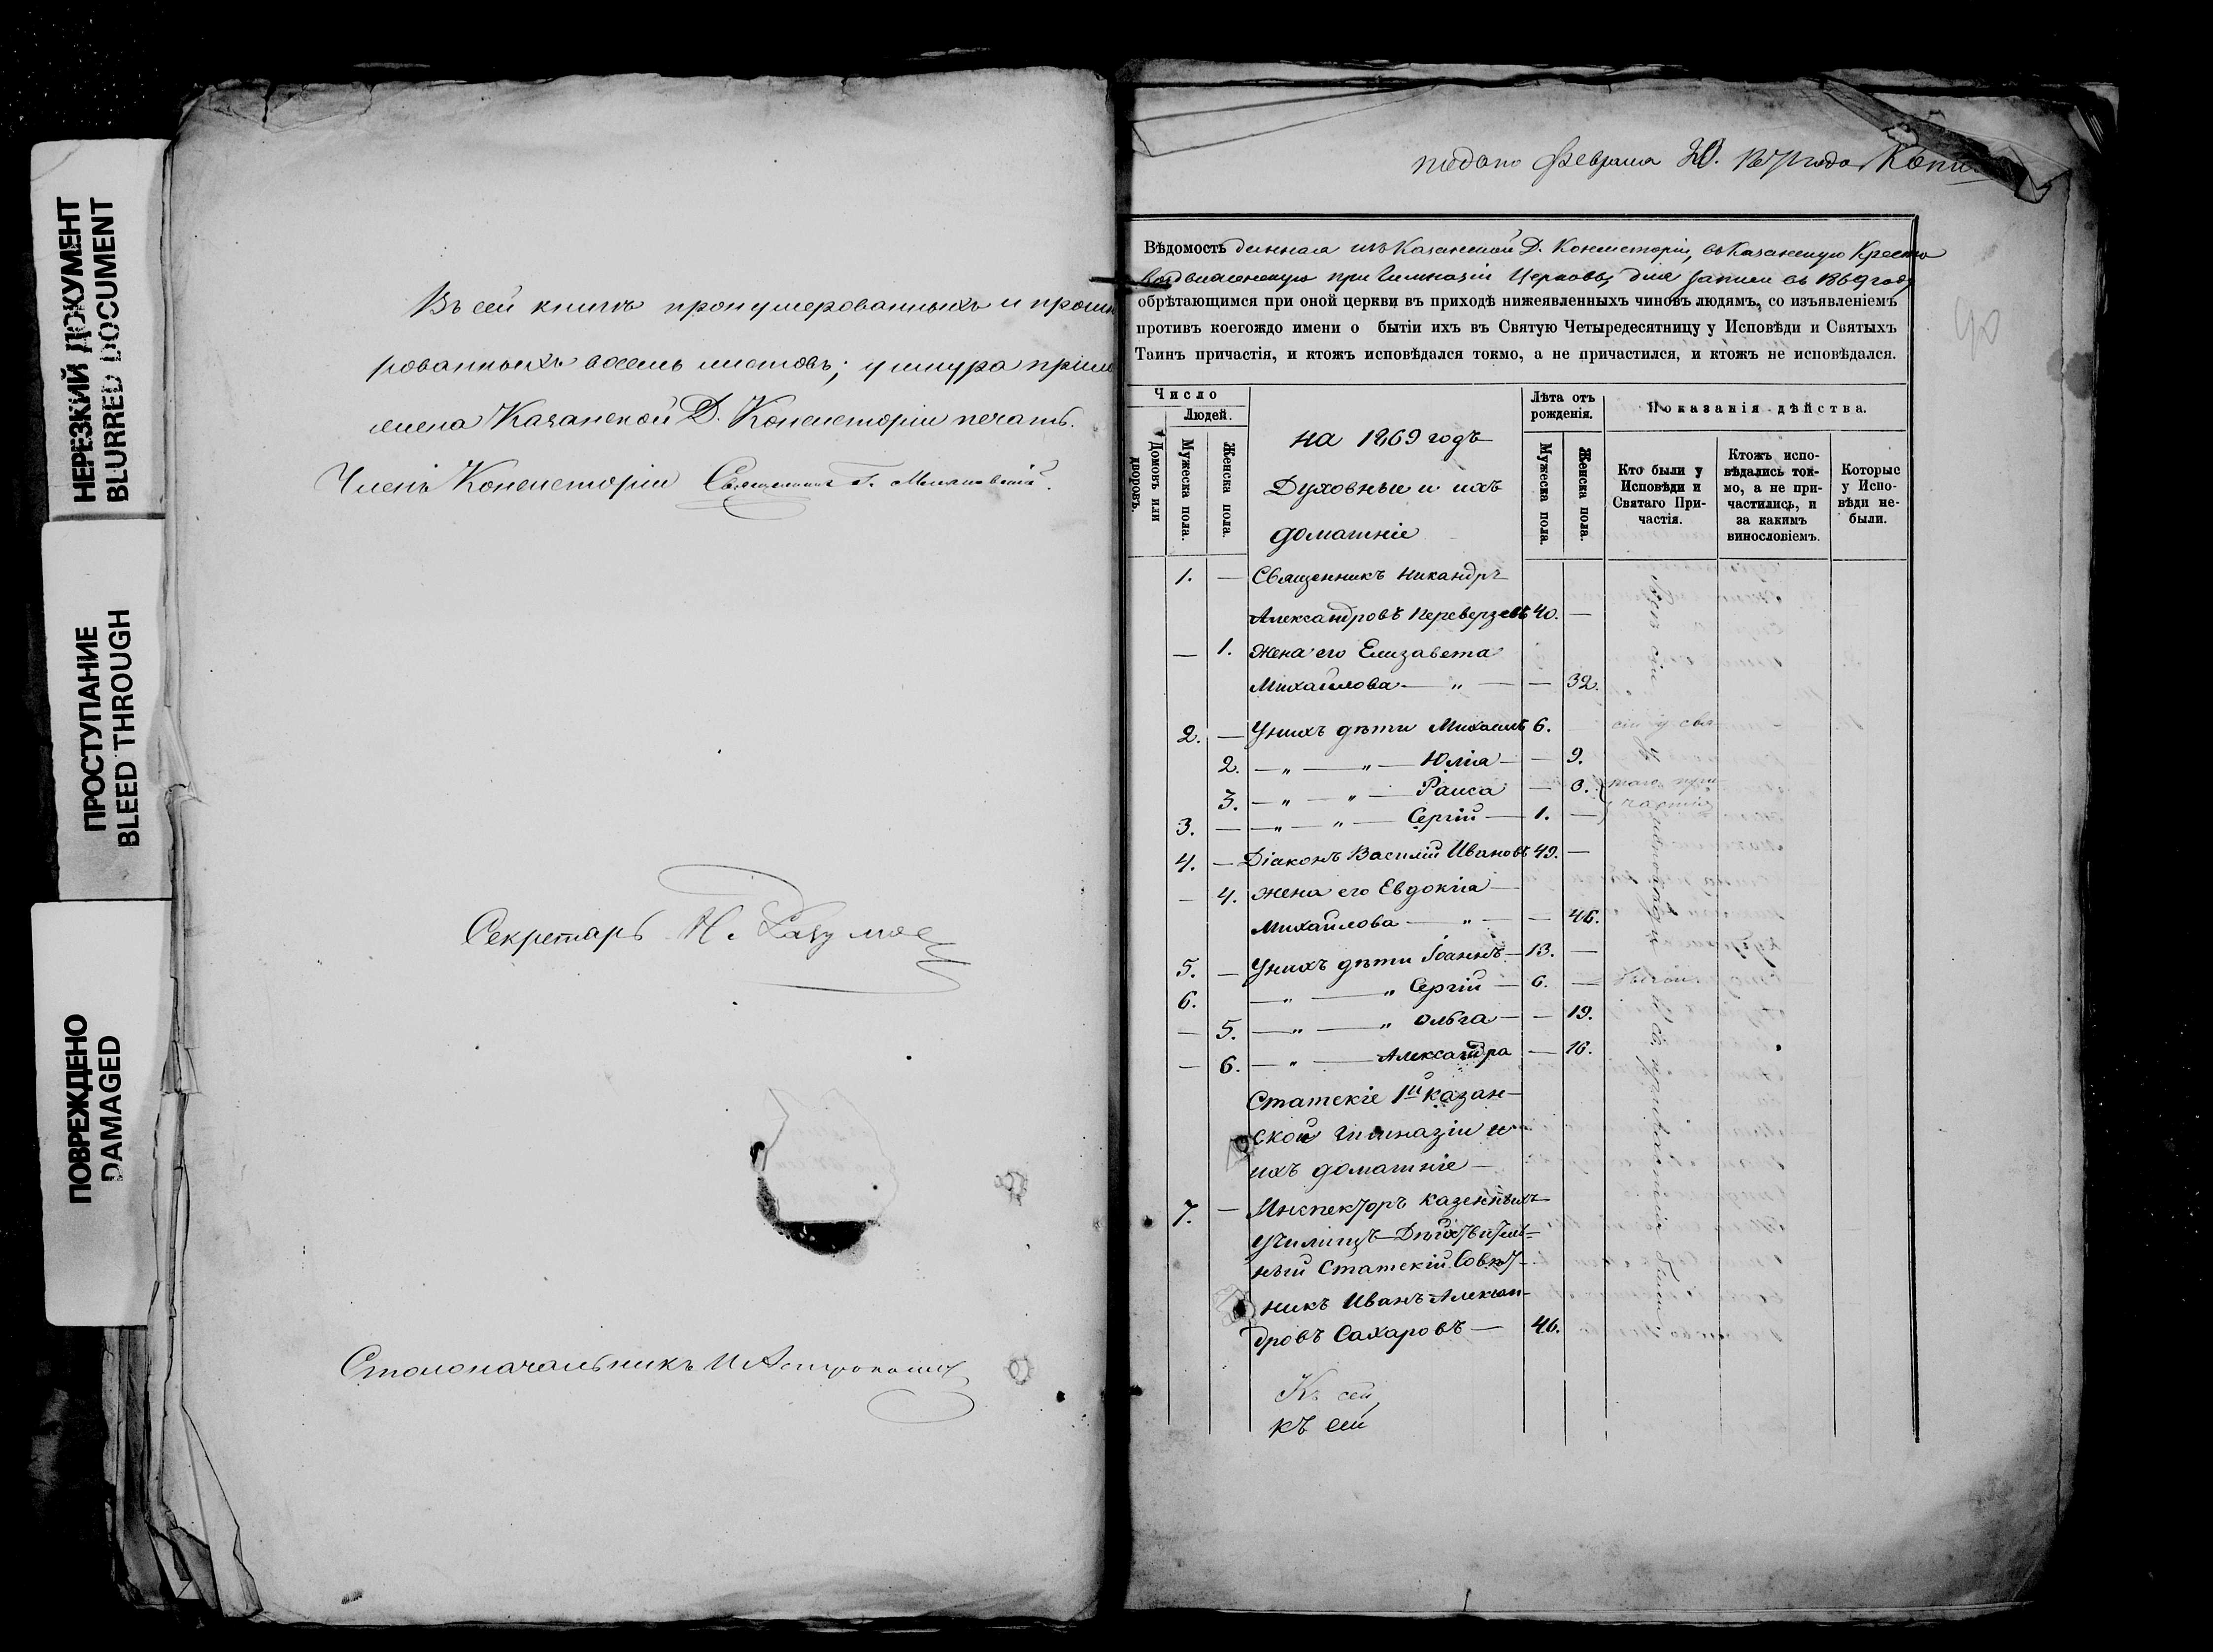 НЕРЕЗКИЙ ДОКУМЕНТ
BLURRED DOCUMENT
ПРОСТУПАНИЕ
BLEED THROUGH
ПОВРЕЖДЕНО
DAMAGED
Въ сей книгѣ пронумерованныхъ и прошну
рованныхъ восемь листовъ; у шнура прило
жена Казанской Д. Консисторіи печать.
Членъ Консисторіи Священникъ
Секретарь Н.
Столоначальникъ И
подано Февраля 20. года Копія
Вѣдомость данная изъ Казанской Д. Консисторіи, въ Казанскую Кресто
воздвиженскую при Гимназіи Церковь, для записи въ 1869 году
обрѣтающимся при оной церкви въ приходѣ нижеявленныхъ чиновъ людямъ, со изъявленіемъ
противъ коегождо имени о бытіи ихъ въ Святую Четыредесятницу у Исповѣди и Святыхъ
Таинъ причастія, и ктожъ исповѣдался токмо, а не причастился, и ктожъ не исповѣдался.
Число
Людей.
Домовъ или дворовъ.
Мужеска пола.
Женска пола.
на 1869 годъ
Духовные и ихъ
домашніе
Лѣта отъ рожденія.
Мужеска пола.
Женска пола.
Показанія дѣйства.
Кто были у Исповѣди и Святаго Причастія.
Ктожъ исповѣдались токмо, а не причастились, и за какимъ винословіемъ.
Которые у Исповѣди небыли.
1. — Священникъ Никандръ
Александровъ Переверзевъ 40. —
— 1. Жена его Елизавета
Михайлова — „ — — 32.
2. — У нихъ дѣти Михаилъ 6.
2. — „ — „ — Юлія — — 9.
3. — „ — „ — Раиса — 3.
3. — — „ — „ — Сергій — 1. —
4. — Діаконъ Василій Ивановъ 49. —
— 4. Жена его Евдокія —
Михайлова — „ — — 46.
5. — У нихъ дѣти Іоаннъ — 13. —
6. — „ — „ Сергій — 6. —
— 5. — „ — „ Ольга — — 19.
— 6. — „ — Александра — 16.
Статскіе 1й Казан-
ской гимназіи и
ихъ домашніе —
7. — Инспекторъ казенныхъ
училищъ — Дѣйствитель-
ный Статскій Совѣт-
никъ Иванъ Алексан-
дровъ Сахаровъ — 46.
Къ сей
къ сей